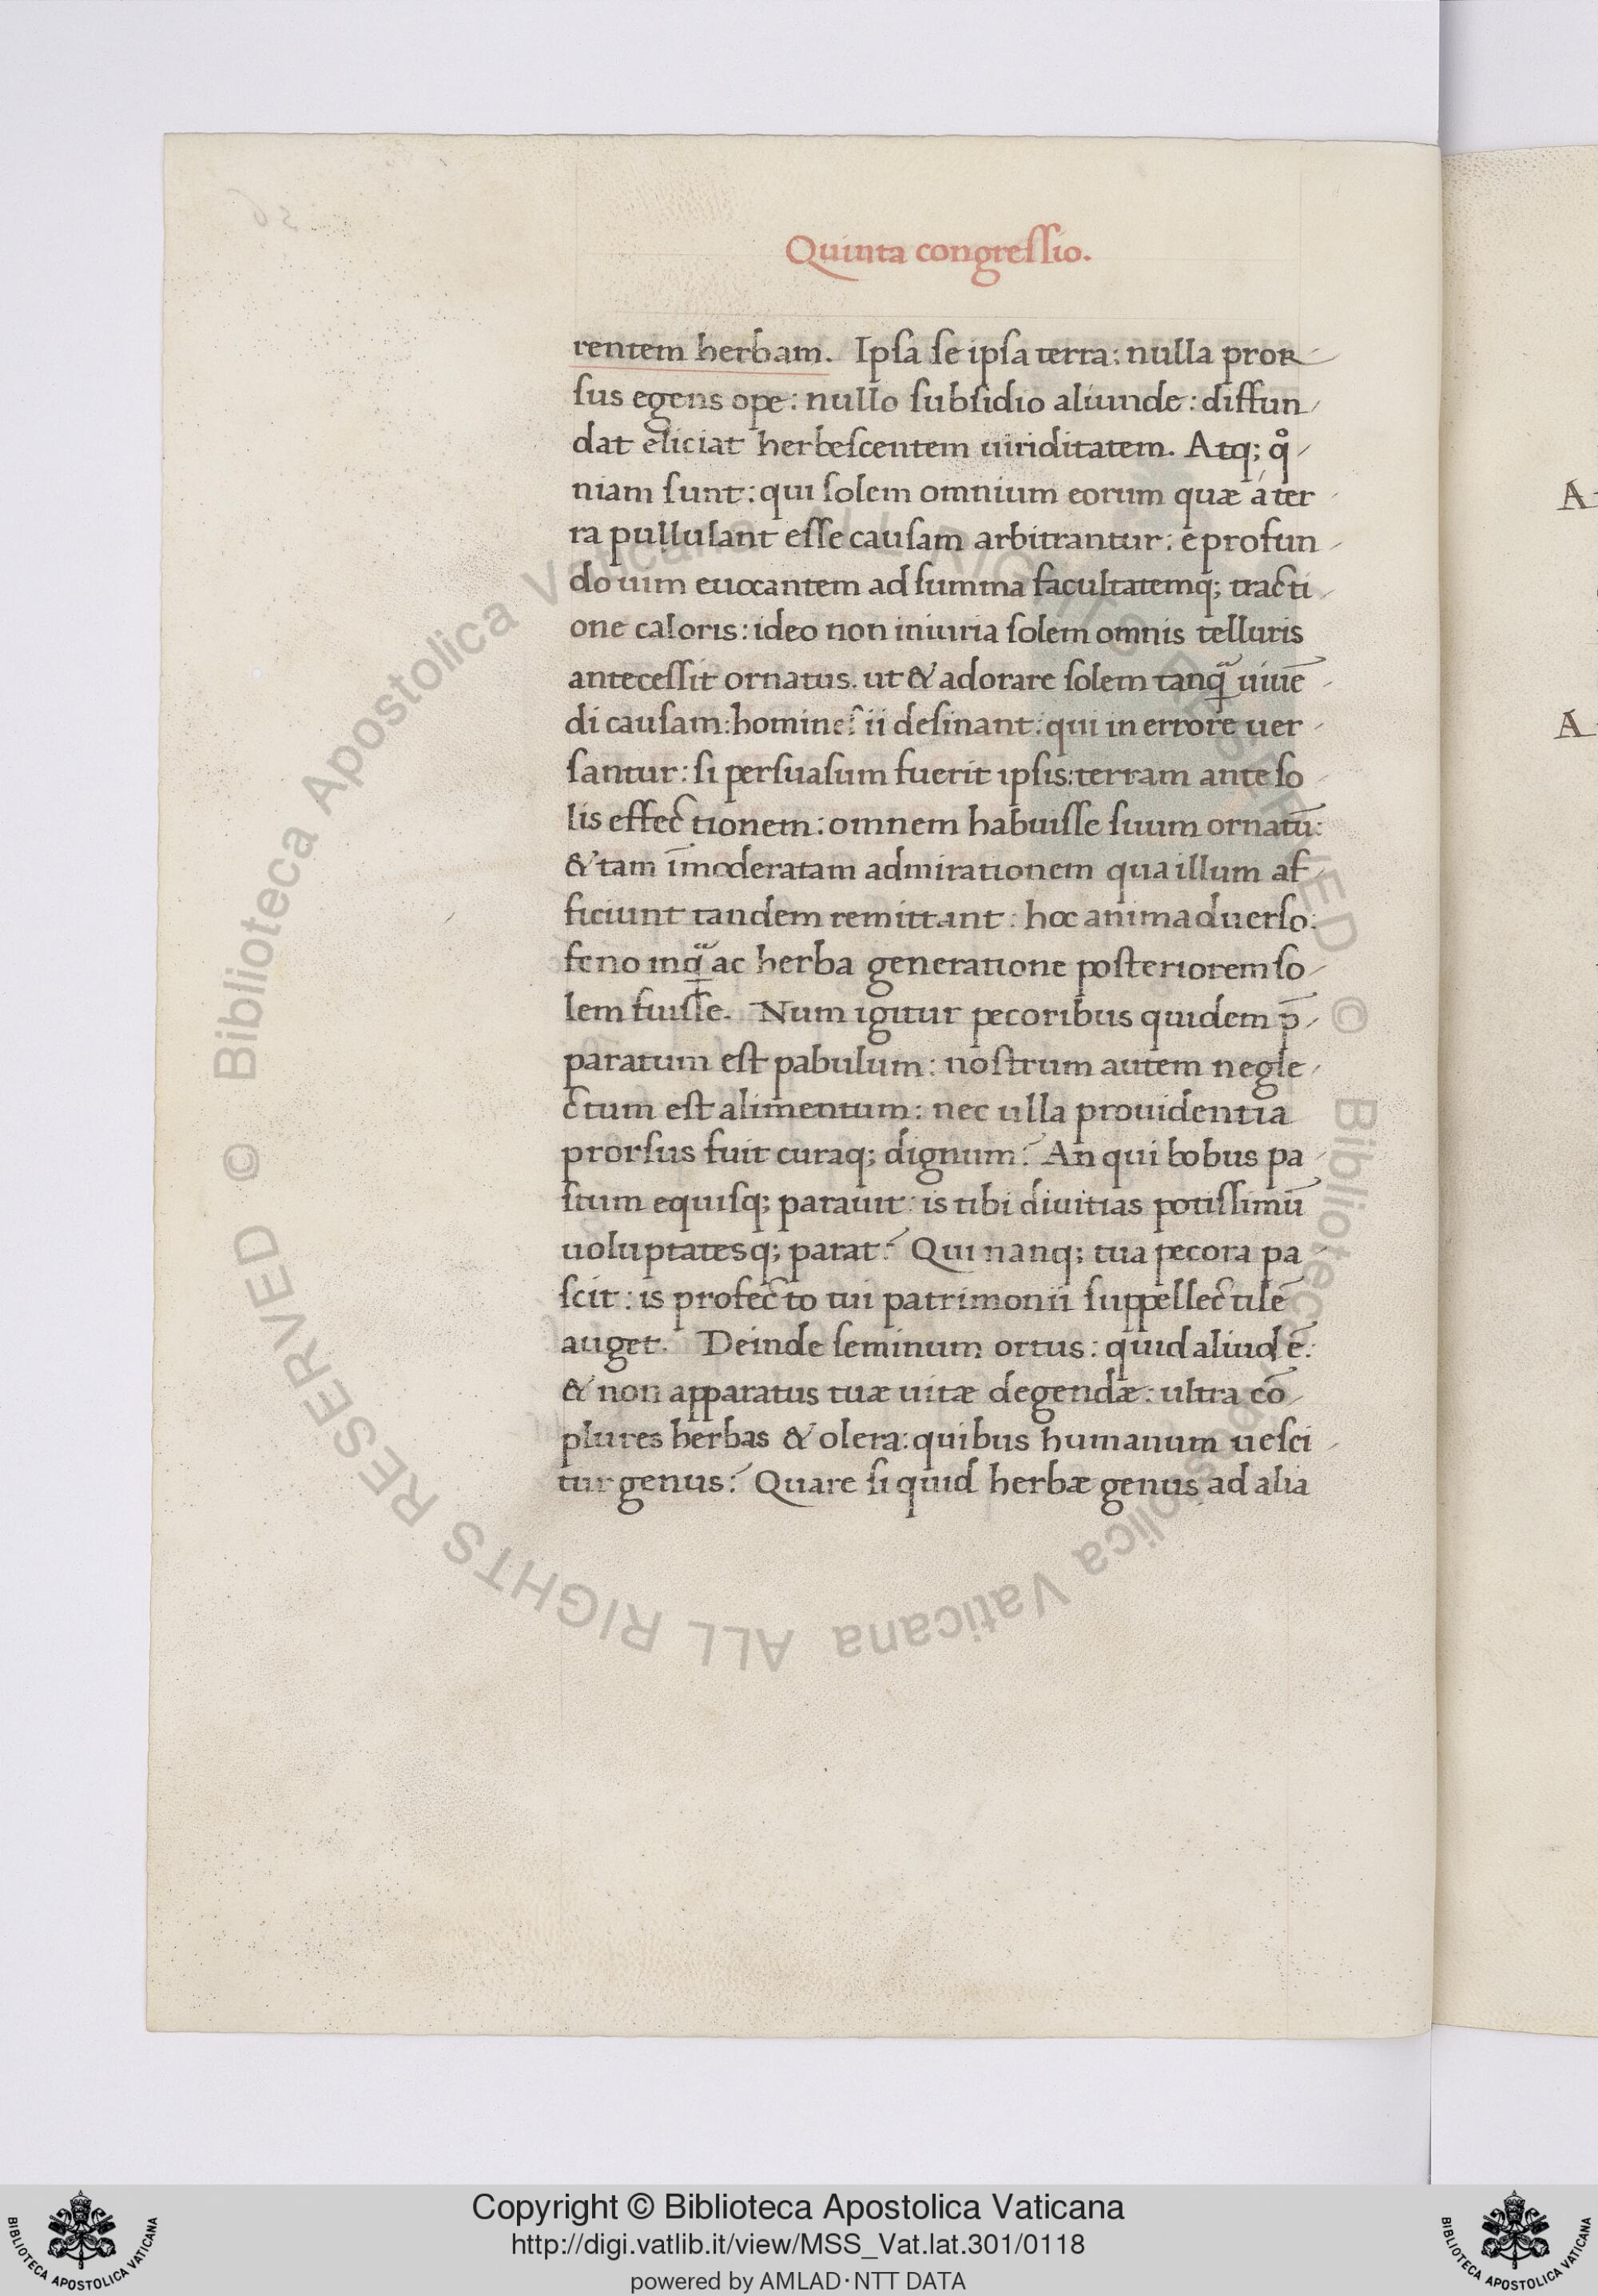 Quinta congreſſio.
rentem herbam. Ipſa ſe ipſa terra: nulla pror
ſus egens ope: nullo ſubſidio aliunde: diffun
dat eliciat herbeſcentem uiriditatem. Atq; q̊
niam ſunt: qui ſolem omnium eorum quæ á ter
ra pullulant eſſe cauſam arbitrantur: e profun
do uim euocantem ad ſumma facultatemq; tracti
one caloris: ideo non iniuria ſolem omnis telluris
anteceſſit ornatus. ut & adorare ſolem tanq̃ uiuē
di cauſam: homineſ ii deſinant: qui in errore uer
ſantur: ſi perſuaſum fuerit ipſis: terram ante ſo
lis effectionem: omnem habuiſſe ſuum ornatū:
& tam īmoderatam admirationem qua illum af
ficiunt tandem remittant: hoc animaduerſo:
feno inq̃ ac herba generatione poſteriorem ſo
lem fuiſſe. Num igitur pecoribus quidem p̄
paratum eſt pabulum: noſtrum autem negle
ctum eſt alimentum: nec ulla prouidentia
prorſus fuit curaq; dignum? An qui bobus pa
ſtum equiſq; parauit: is tibi diuitias potiſſimū
uoluptatesq; parat? Qui nanq; tua pecora pa
ſcit: is profecto tui patrimonii ſuppellectilē
auget. Deinde ſeminum ortus: quid aliud ē:
& non apparatus tuæ uitæ degendæ: ultra cō
plures herbas & olera: quibus humanum ueſci
tur genus? Quare ſi quid herbæ genus ad alia
A
A
© Biblioteca Apostolica Vaticana ALL RIGHTS RESERVED © Biblioteca Apostolica Vaticana ALL RIGHTS RESERVED
Copyright © Biblioteca Apostolica Vaticana
http://digi.vatlib.it/view/MSS_Vat.lat.301/0118
powered by AMLAD·NTT DATA
BIBLIOTECA APOSTOLICA VATICANA
BIBLIOTECA APOSTOLICA VATICANA